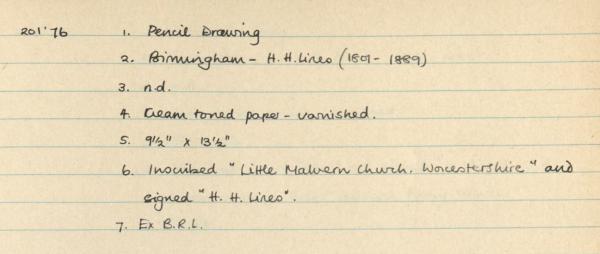 201'76 1. Pencil Drawing
2. Birmingham - H.H. Lines (1801 - 1889)
3. n.d.
4. Cream toned paper - varnished.
5. 9½" x 13½"
6. Inscribed "Little Malvern Church, Worcestershire" and
signed "H. H. Lines".
7. Ex B.R.L.